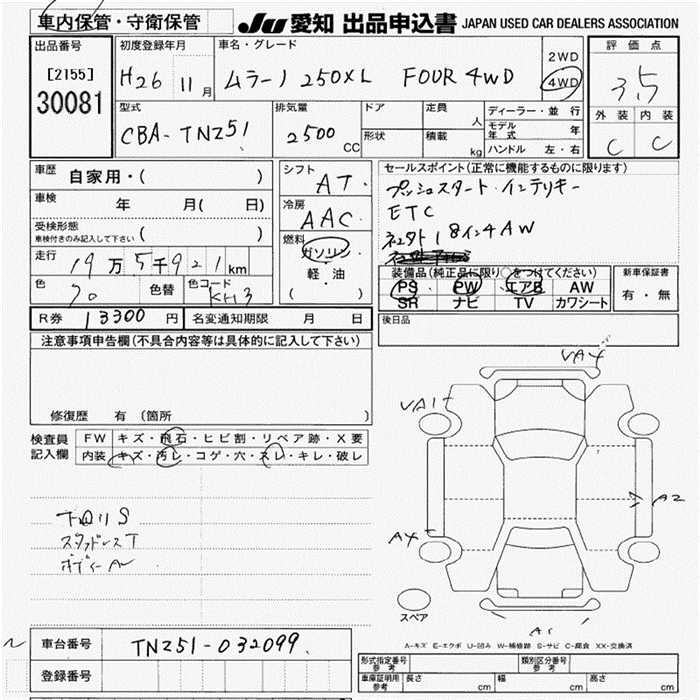 車内保管・守衛保管
JU 愛知 出品申込書 JAPAN USED CAR DEALERS ASSOCIATION
出品番号
[2155]
30081
初度登録年月
H26 11月
車名・グレード
ムラーノ 250XL FOUR 4WD
2WD
4WD
評価点
3.5
外装 内装
C C
型式
CBA-TNZ51
排気量
2500 CC
ドア
形状
定員 人
積載 kg
ディーラー・並行
モデル年式 年
ハンドル 左・右
車歴 自家用・( )
車検 年 月( 日)
受検形態
車検付きのみ記入して下さい ( )
走行 19万5千921km
色
70
色替
色コード
KH3
シフト
AT
冷房
AAC
燃料
ガソリン
・
軽・油
( )
セールスポイント(正常に機能するものに限ります)
プッシュスタート・インテリキー
ETC
18インチAW
装備品(純正品に限り○をつけてください)
PS PW エアB AW
SR ナビ TV カワシート
新車保証書
有・無
R券 13300円 名変通知期限 月 日
後日品
注意事項申告欄(不具合内容等は具体的に記入して下さい)
修復歴 有(箇所 )
検査員
記入欄
FW キズ・飛石・ヒビ割・リペア跡・X要
内装 キズ・汚レ・コゲ・穴・スレ・キレ・破レ
スタッドレスT
VA4
VA1
A2
A4
A1
スペア
A-キズ E-エクボ U-凹み W-補修跡 S-サビ C-腐食 XX-交換済
車台番号 TNZ51-032099
登録番号
型式指定番号 参考
類別区分番号 参考
車庫証明用 参考 長さ cm 幅 cm 高さ cm